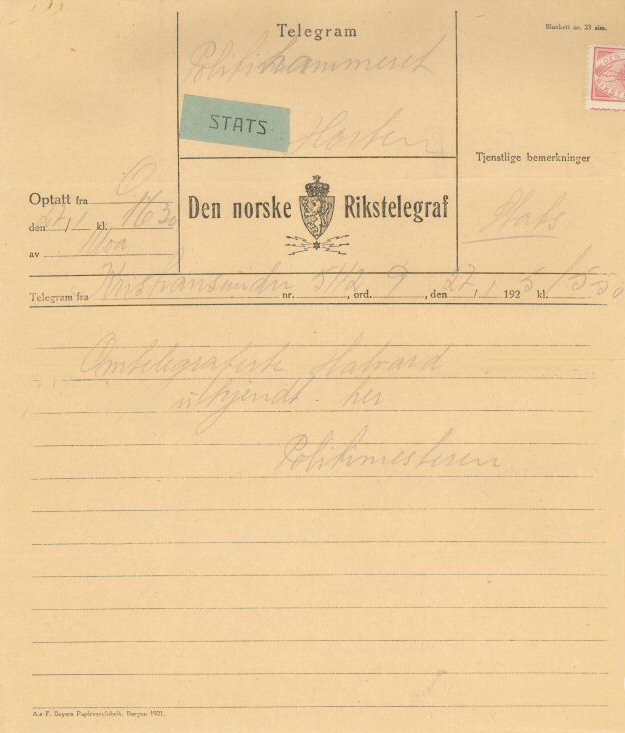 Telegram
Blankett nr. 23
Politikammeret
STATS
Horten
Tjenstlige bemerkninger
Optatt fra O
den 27/1 kl. 16 30
av Moa
Den norske Rikstelegraf
Stats
Telegram fra Kristiansundn nr. 542, ord. 9, den 27/1 1925 kl. 15 50
Omtelegraferte Halvard
ukjendt her
Politimesteren
A.s F. Beyers Papirvarefabrik, Bergen 1921.